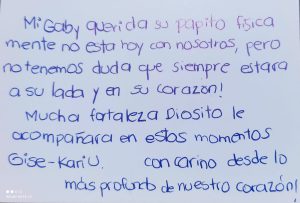 Mi Gaby querida su papito fisica
mente no esta hoy con nosotros, pero
no tenemos duda que siempre estara
a su lada y en su corazon!
Mucha fortaleza Diosito le
acompañara en estos momentos
Gise-Kariu. con carino desde lo
más profundo de nuestro corazón!